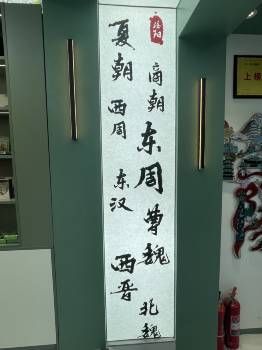 洛阳
夏朝
商朝
西周
东周
东汉
曹魏
西晋
北魏